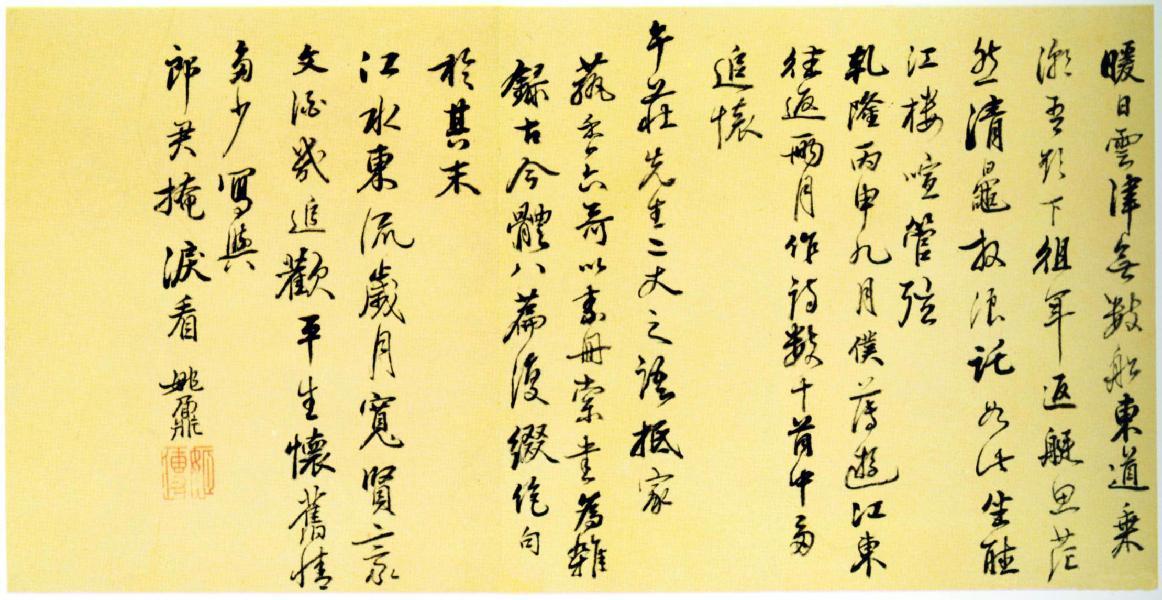 暖日雲津無數船東道乘
潮吾欲下徂年返艇思茫
然清鼂放浪託如此生醒
江樓喧管弦
乾隆丙申九月僕薄遊江東
往返兩月作詩數十首中多
追懷
午莊先生二丈之語抵家
以素冊索書為雜
錄古今體八篇復綴絕句
於其末
江水東流歲月寬賢豪
文酒幾追歡平生懷舊情
多少寫與
郎君掩淚看 姚鼐